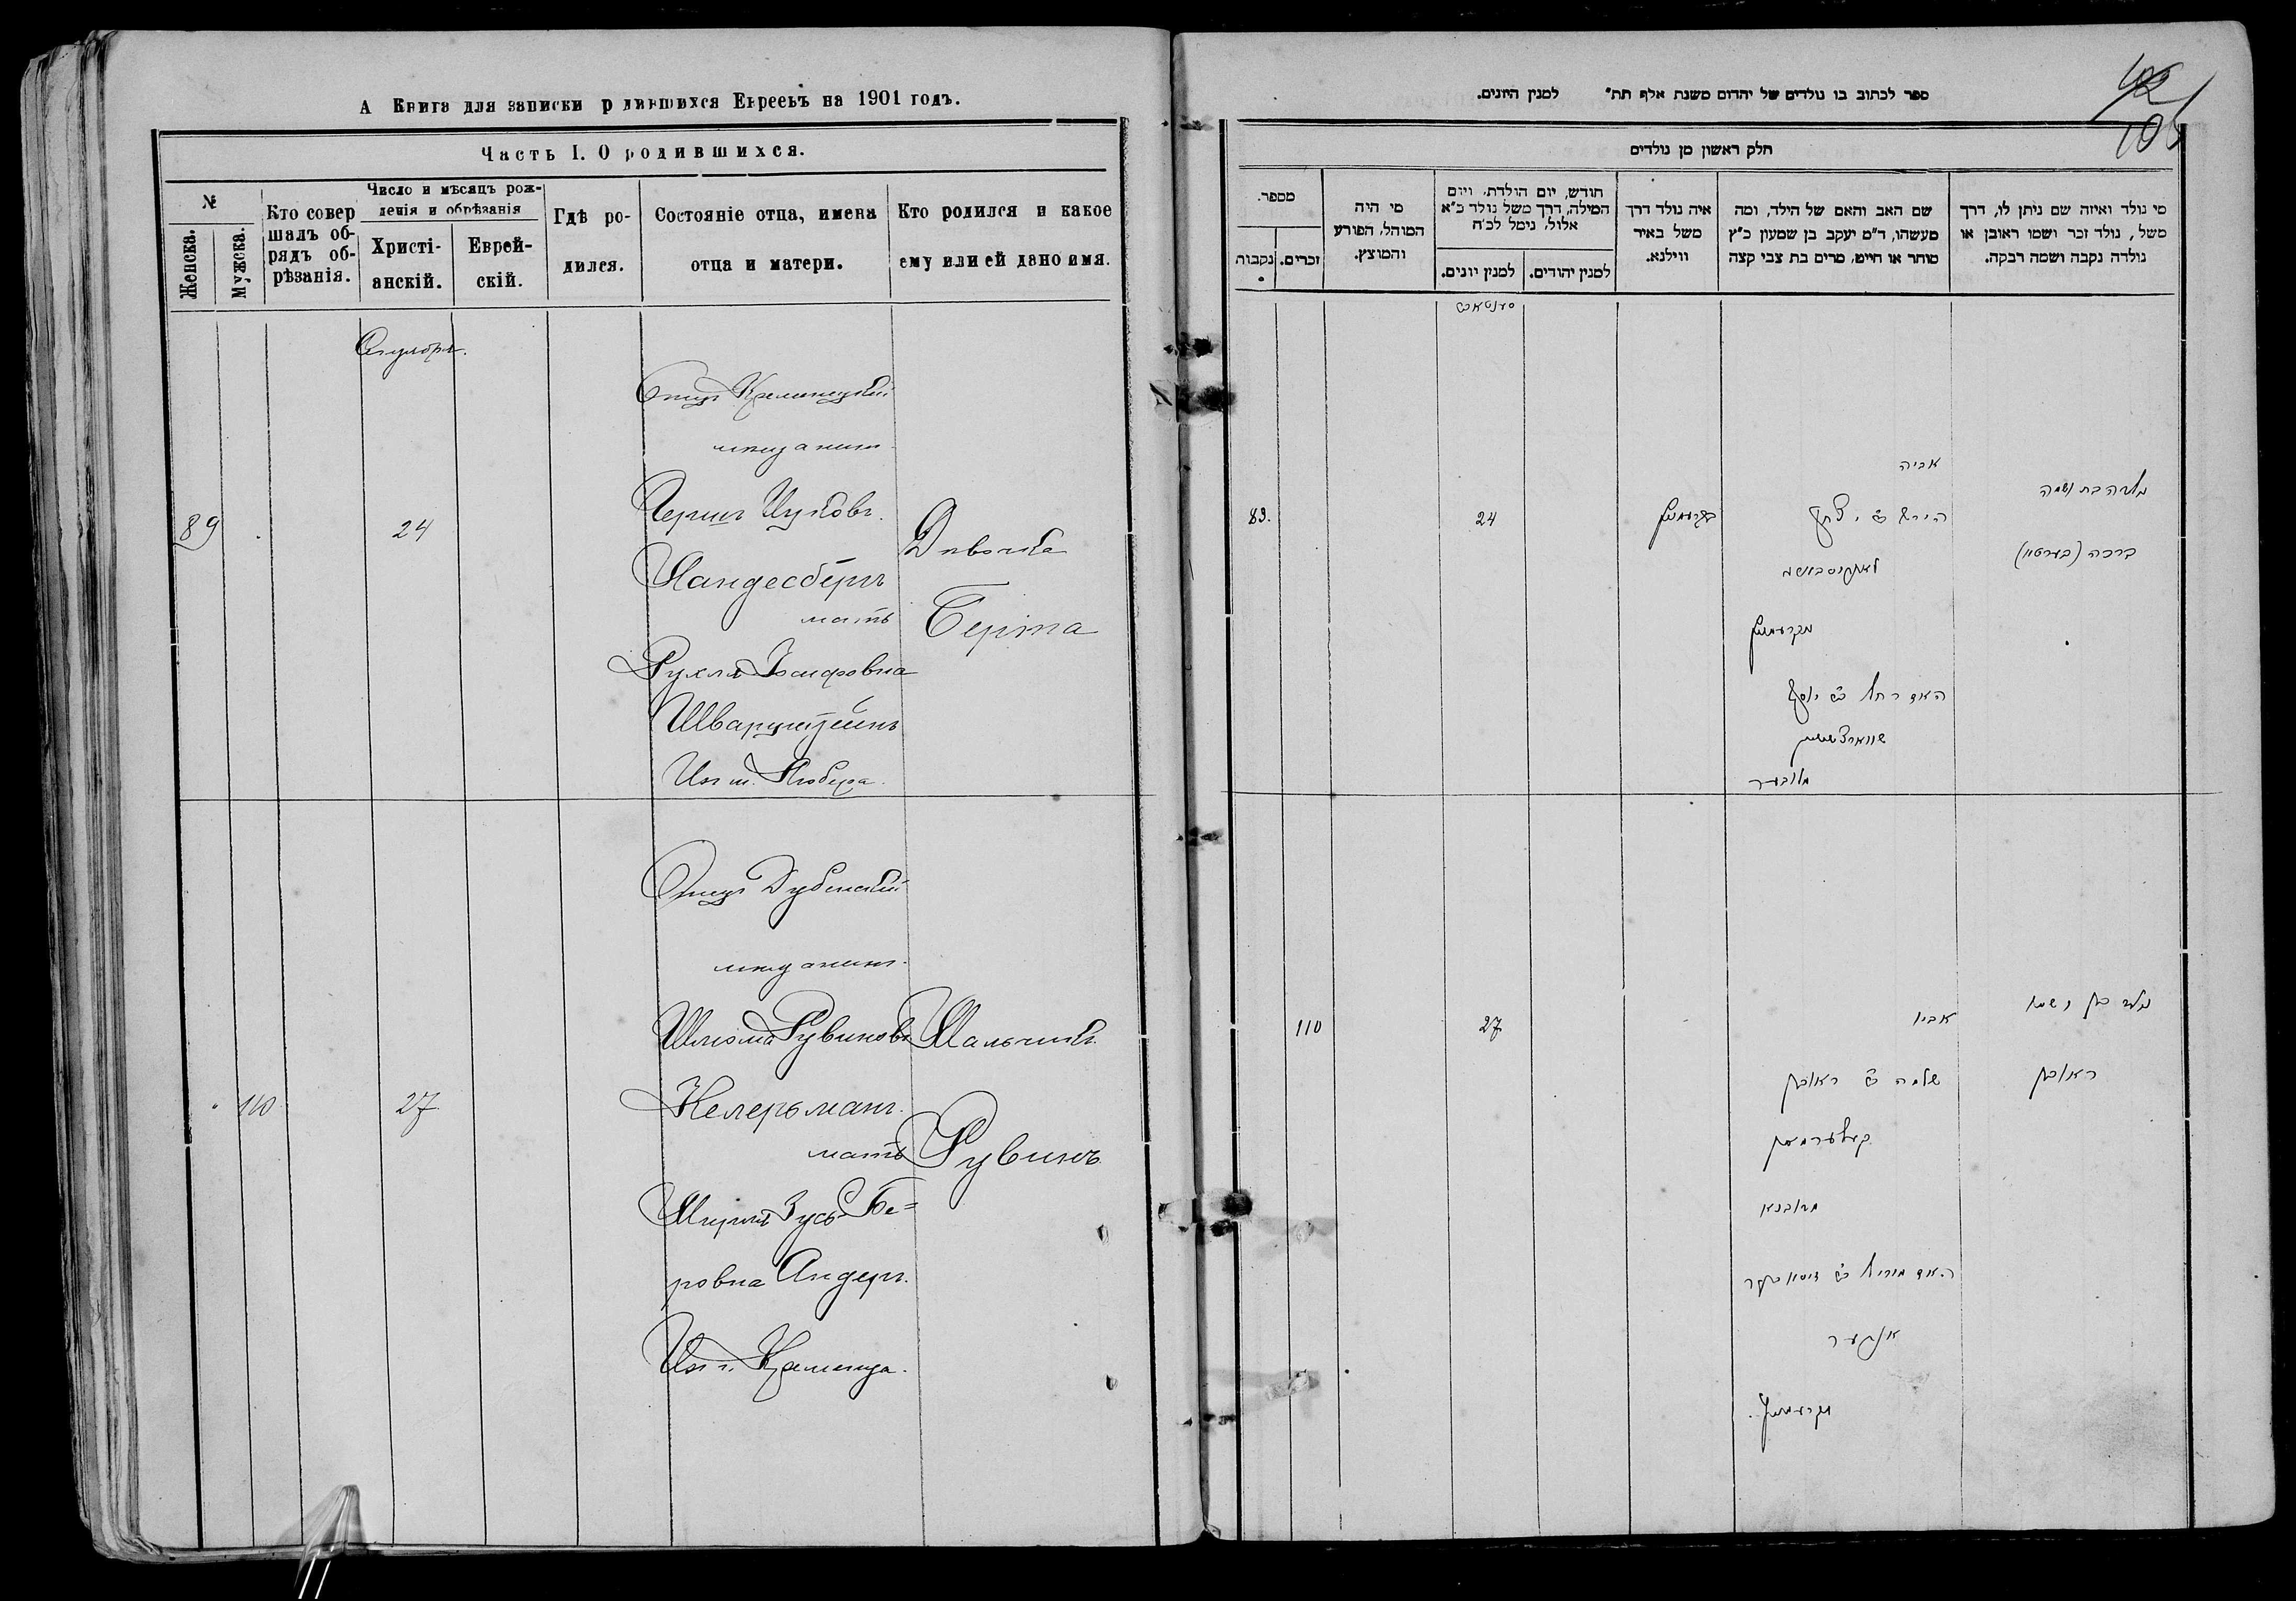 А Книга для записки р дившихся Евреевъ на 1901 годъ.
Часть I. О родившихся.
№
Женска.
Мужска.
Кто совер
шалъ об-
рядъ об-
рѣзанія.
Число и мѣсяцъ рож-
денія и обрѣзанія
Христі-
анскій.
Еврей-
скій.
Гдѣ ро-
дился.
Состояніе отца, имена
отца и матери.
Кто родился и какое
ему или ей дано имя.
Сентября.
89
24
Отецъ Кременецкій
мѣщанинъ
Гершъ Ицковъ.
Ландесбергъ
мать
Рухля Іосифовна
Шварцштейнъ
Изъ м. Любера.
Дѣвочка
Берта
110
27
Отецъ Дубенскій
мѣщанинъ.
Шлиома Рувиновъ
Келерманъ.
мать
Миріля Зусь-Бе=
ровна Андеръ.
Изъ г. Кременца.
Мальчикъ.
Рувинъ.
ספר לכתוב בו נולדים של יהדום משנת אלף תת״ למנין היונים.
105
חלק ראשון מן נולדים
מספר.
נקבות
זכרים.
מי היה
המוהל, הפורע
והמוצץ.
חודש, יום הולדת, ויום
המילה, דרך משל נולד כ״א
אלול, נימל לכ״ח
למנין יונים.
למנין יהודים.
איה נולד דרך
משל באיד
ווילנא.
שם האב והאם של הילד, ומה
מעשהו, ד״מ יעקב בן שמעון כ״ץ
סוחר או חייט, מרים בת צבי קצה
מי נולד ואיזה שם ניתן לו, דרך
משל, נולד זכר ושמו ראובן או
נולדה נקבה ושמה רבקה.
89.
24
אביה
נולדה בת ושמה
ברכה (בערטא)
האם רחל בת יוסף
שווארצשטיין
110
27
אביו
נולד בן ושמו
שלמה ב״ר ראובן
ראובן
קעלערמאן
מדובנא
אנדער
מקרעמניץ.